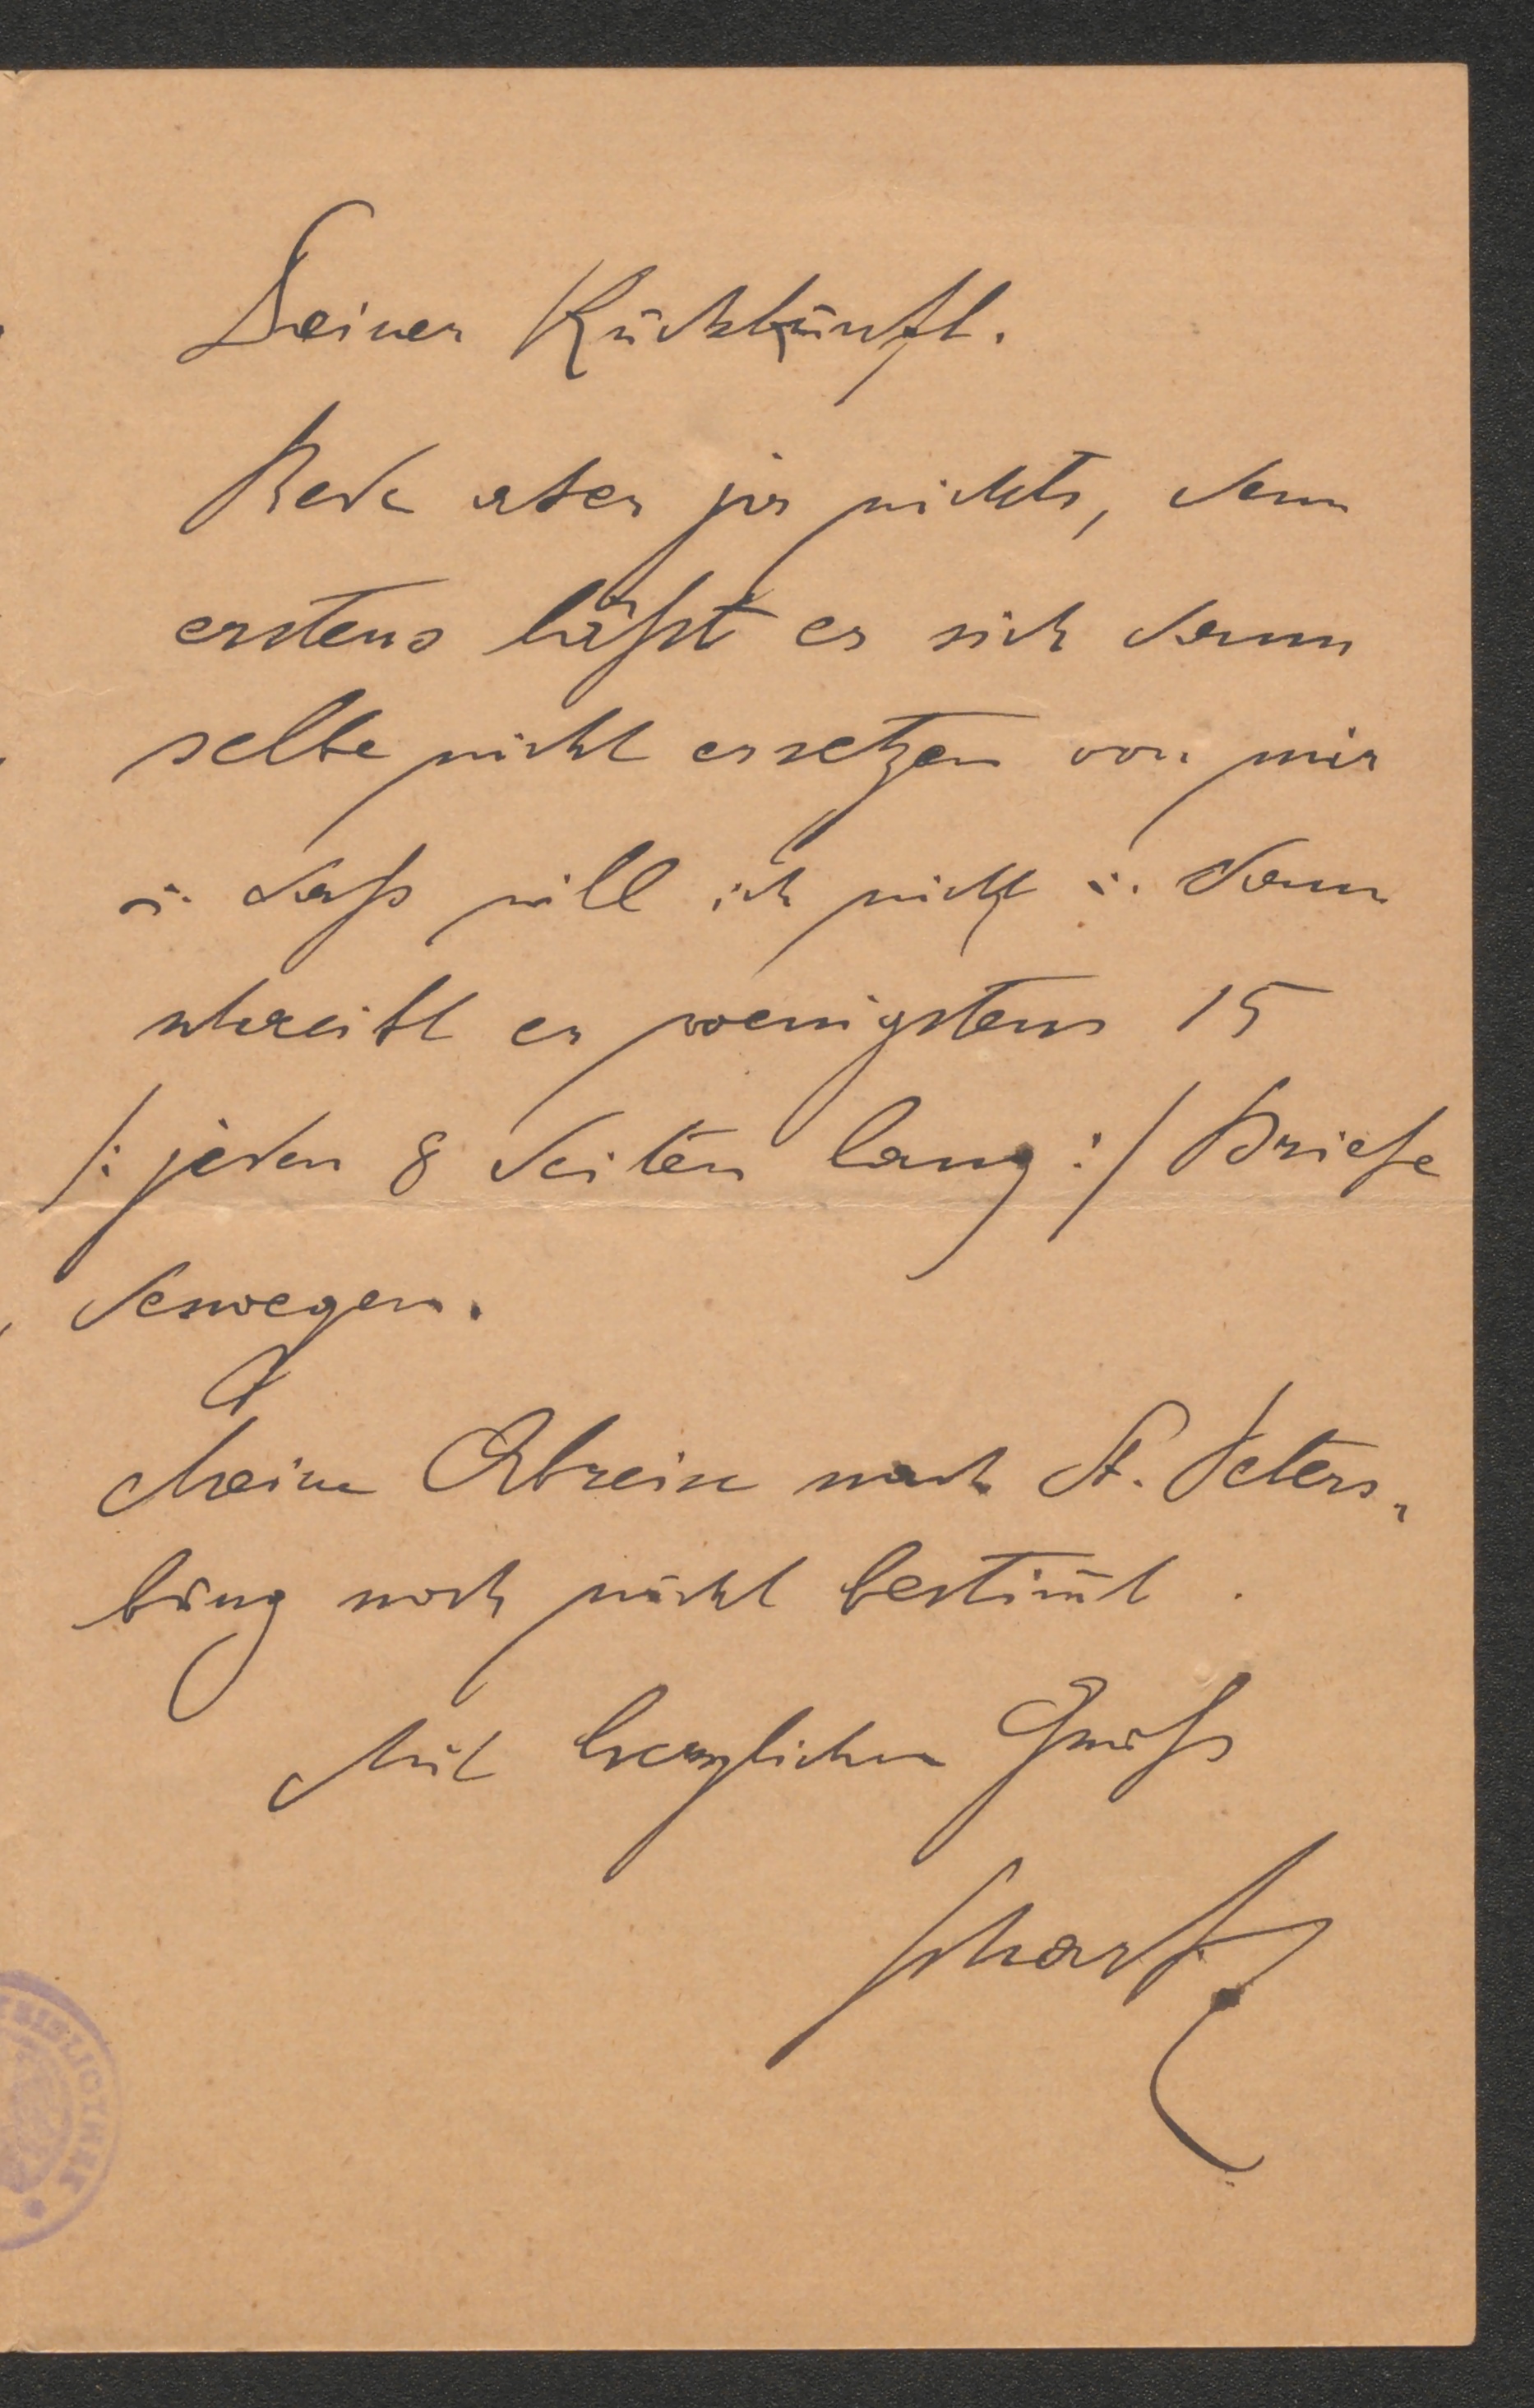 Deiner Rückkunft.
Rede aber ja nichts, denn
erstens läßt er sich dann
selbe nicht ersetzen von mir
u. daß will ich nicht u. dann
schreibt er wenigstens 15
/: jeden 8 Seiten lang :/ Briefe
deswegen.
Meine Abreise nach St. Peters-
burg noch nicht bestim̄t.
Mit herzlichen Gruß
Scharf
BIBLIOTHEK